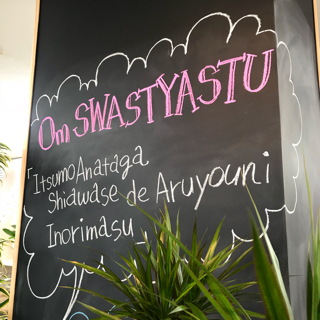 Om SWASTYASTU
「Itsumo Anataga
Shiawase de Aruyouni
Inorimasu」